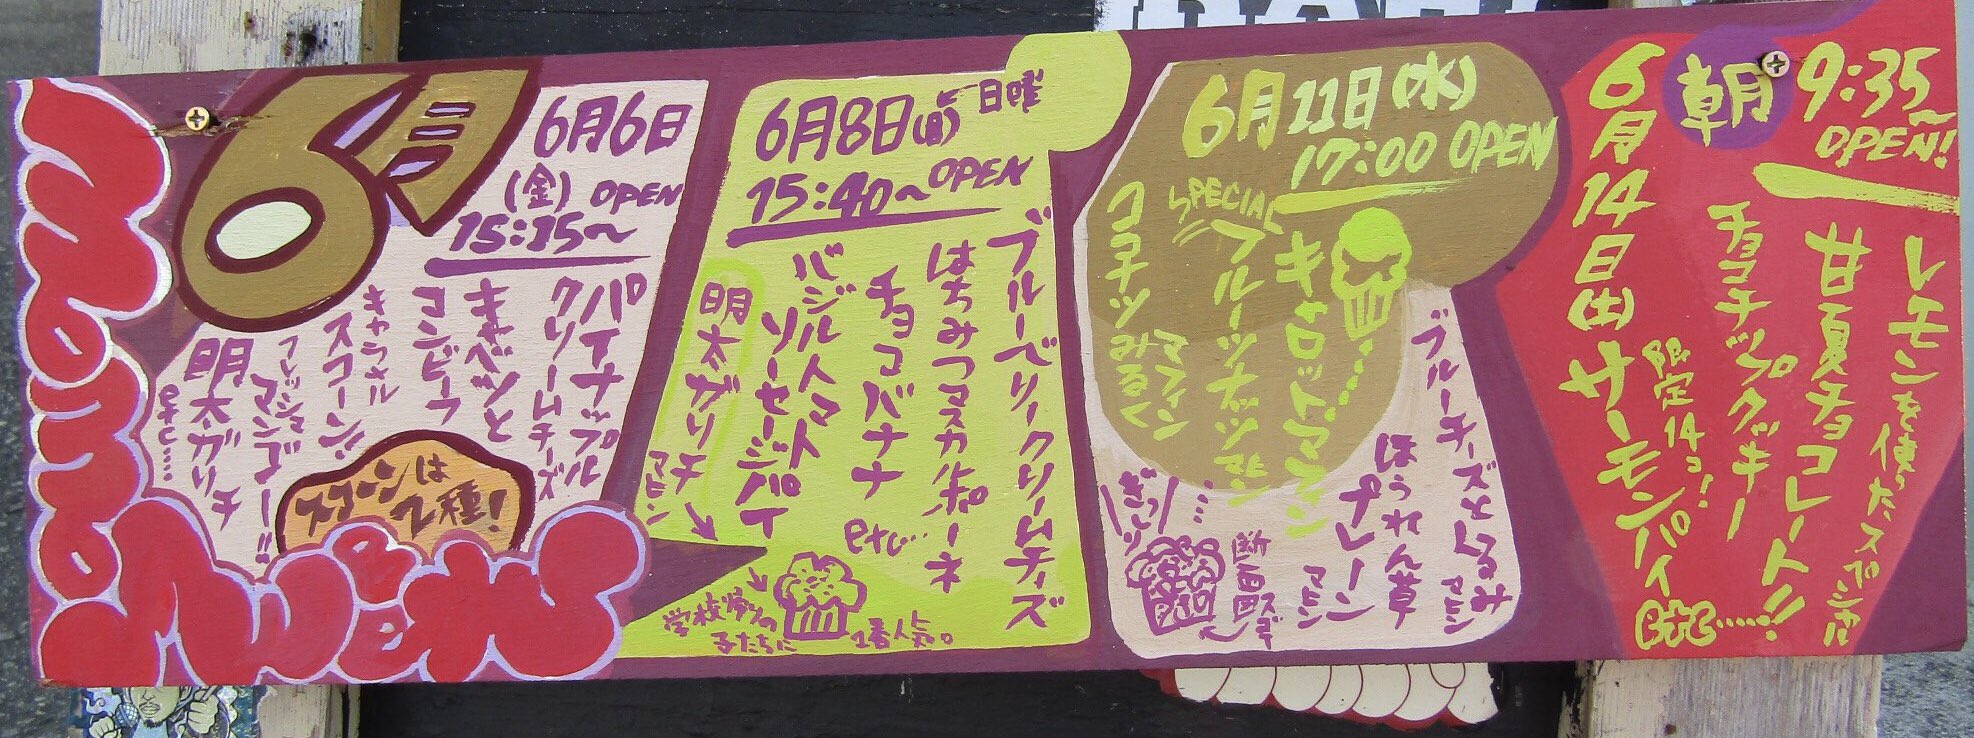 6月
6月6日
(金) OPEN
15:15〜
パイナップル
クリームチーズ
キャベツと
コンビーフ
キャラメル
スコーン!
フレッシュ
マンゴー!!
明太ガリチ
etc....
スコーンは
2種!
6月8日(日)←日曜
15:40〜OPEN
ブルーベリークリームチーズ
はちみつマスカルポーネ
チョコバナナ
etc...
バジルトマト
ソーセージパイ
明太ガリチ
マヒン
学校帰りの
子たちに
1番人気。
6月11日(水)
17:00 OPEN
SPECIAL
キャロットマフィン
フルーツナッツマヒン
ココナツみるく
マフィン
ブルーチーズとくるみ
マヒン
ほうれん草
プレーン
マヒン
ぎっしり
断面図
スゴイ
6月14日(土)
朝
9:35〜
OPEN!
レモンを使ったスペシャル
甘夏チョコレート!!
チョコチップクッキー
限定14コ!
サーモンパイ
etc.....!